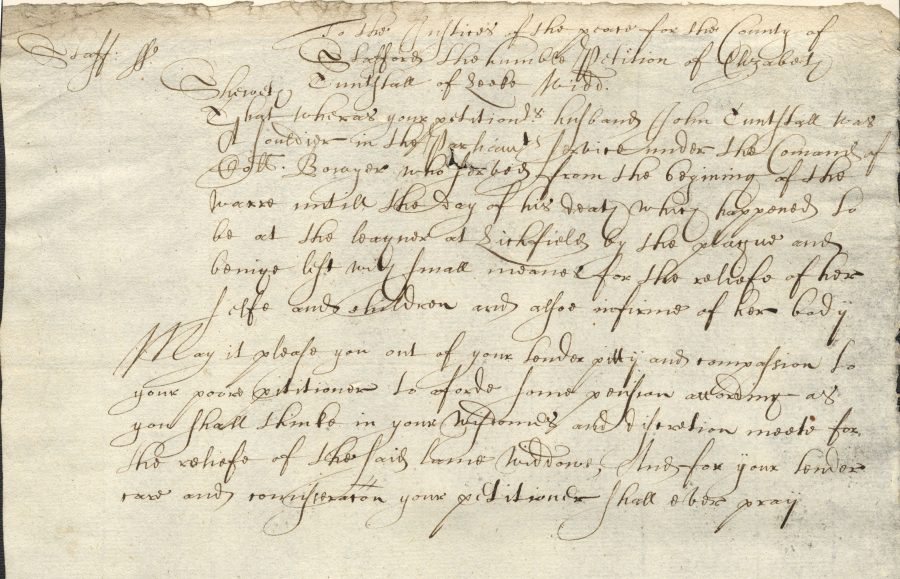 To the Justices of the peace for the County of
Staff. ss Stafford the humble Petition of Elizabeth
Tunstall of Leeke Widd.
Sheweth
That wheras your petition.rs husband John Tunstall was
A souldier in the Parliam.ts service under the Comand of
Coll: Bowyer who served from the begining of the
warre untill the day of his death which happened to
be at the leaguer at Lichfield by the plague and
beinge left with small meanes for the reliefe of her
selfe and children and alsoe infirme of her body
May it please you out of your tender pitty and compassion to
your poore petitioner to aforde some pension according as
you shall thinke in your wisdomes and discretion meete for
the reliefe of the said lame widdowe, And for your tender
care and consideracon your petitioner shall ever pray